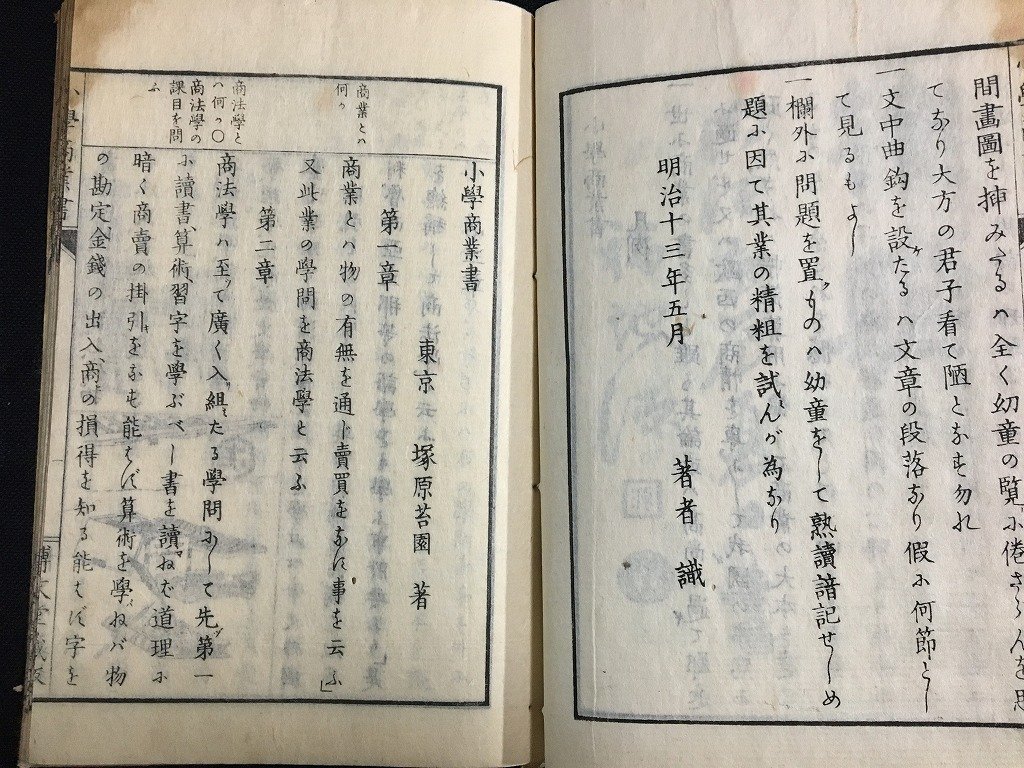 間畫圖を挿みたるハ全く幼童の覽に倦さらんを思
てなり大方の君子看て陋となす勿れ
一文中曲鈎を設けたるハ文章の段落なり假に何節とし
て見るもよし
一欄外に問題を置くものハ幼童をして熟讀諳記せしめ
題に因て其業の精粗を試んが為なり
明治十三年五月 著者 識
小學商業書
東京 塚原苔園 著
第一章
商業とハ
何か
商業とハ物の有無を通し賣買をなす事を云ふ」
又此業の學問を商法學と云ふ
第二章
商法學と
ハ何か〇
商法學の
課目を問
ふ
商法學ハ至て廣く入組たる學問にして先第一
に讀書、算術、習字を學ぶべし書を讀ねば道理に
暗く商賣の掛引をなす能はず算術を學ねバ物
の勘定、金錢の出入、商の損得を知る能はず字を
小學商業書